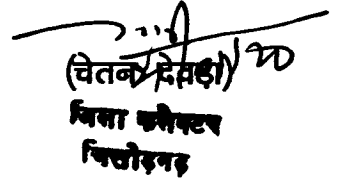 (चेतन देवड़ा)
जिला कलेक्टर
चित्तोड़गढ़